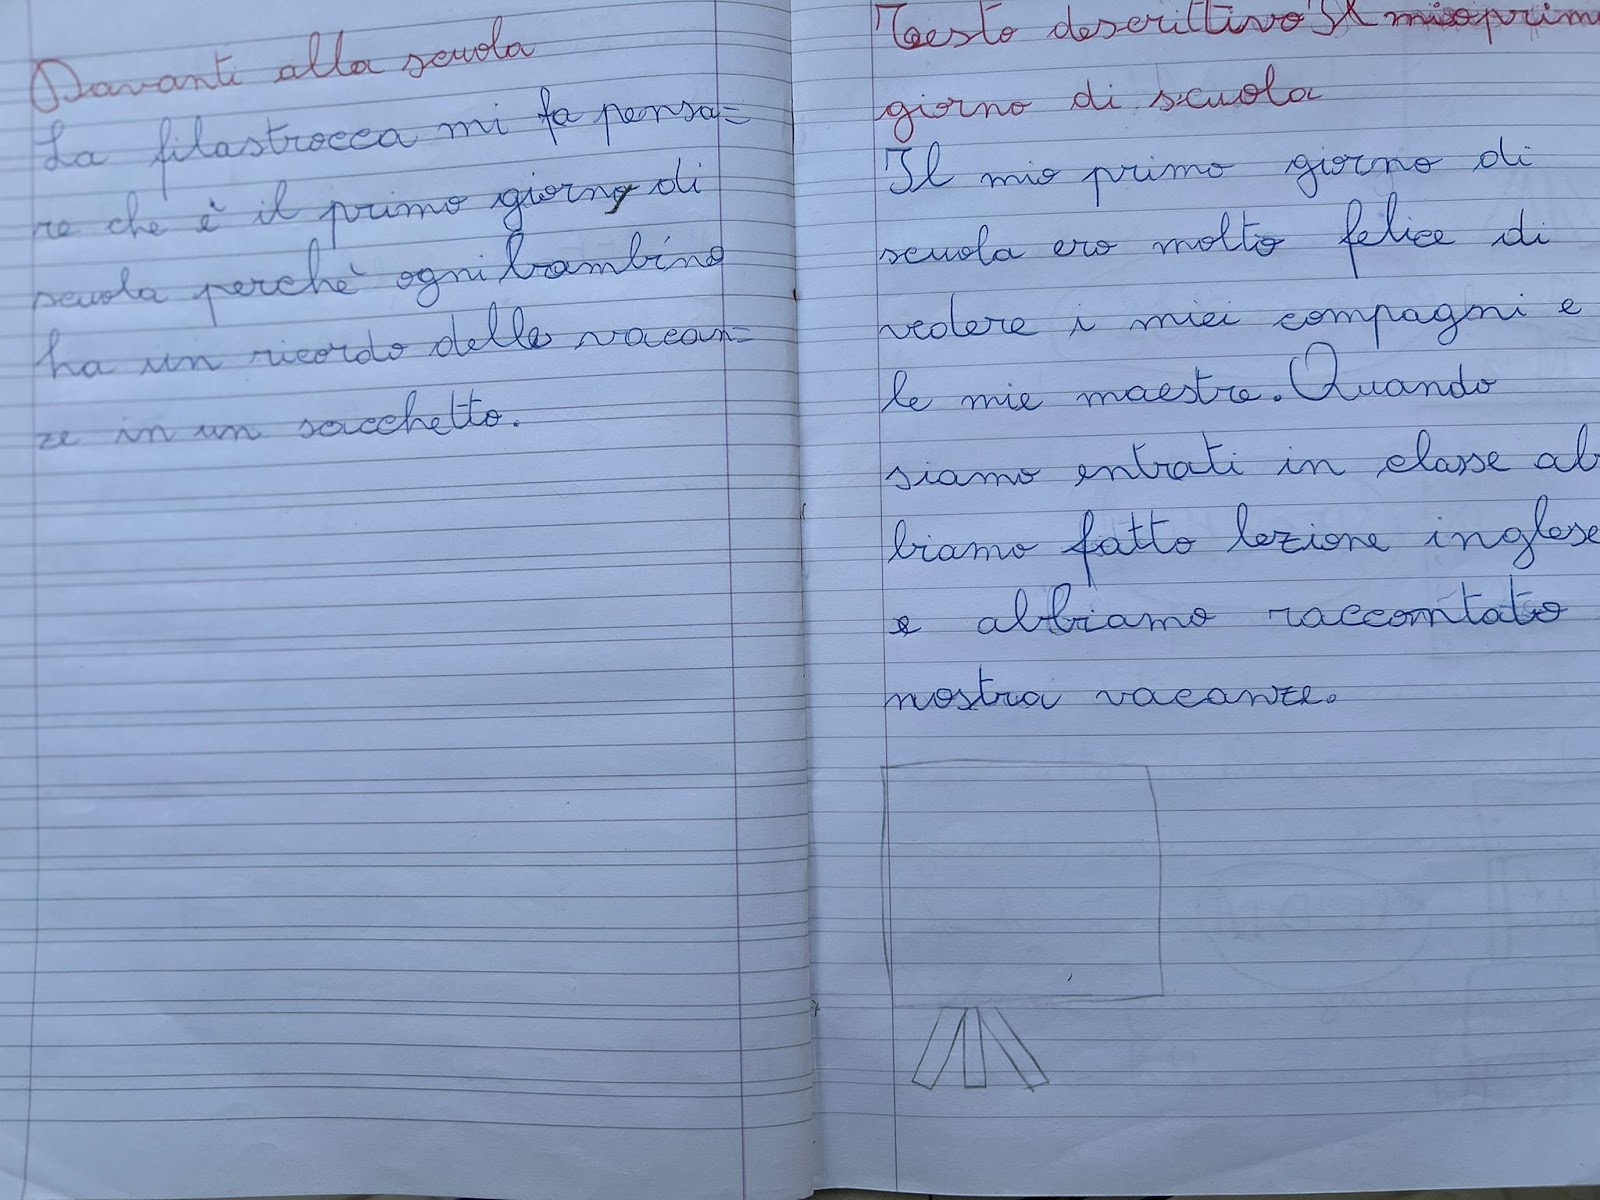 Davanti alla scuola
La filastrocca mi fa pensa=
re che è il primo giorno di
scuola perchè ogni bambino
ha un ricordo delle vacan=
ze in un sacchetto.
Testo descrittivo Il mio prim
giorno di scuola
Il mio primo giorno di
scuola ero molto felice di
vedere i miei compagni e
le mie maestre. Quando
siamo entrati in classe ab
biamo fatto lezione inglese
e abbiamo raccomtato
nostra vacanze.